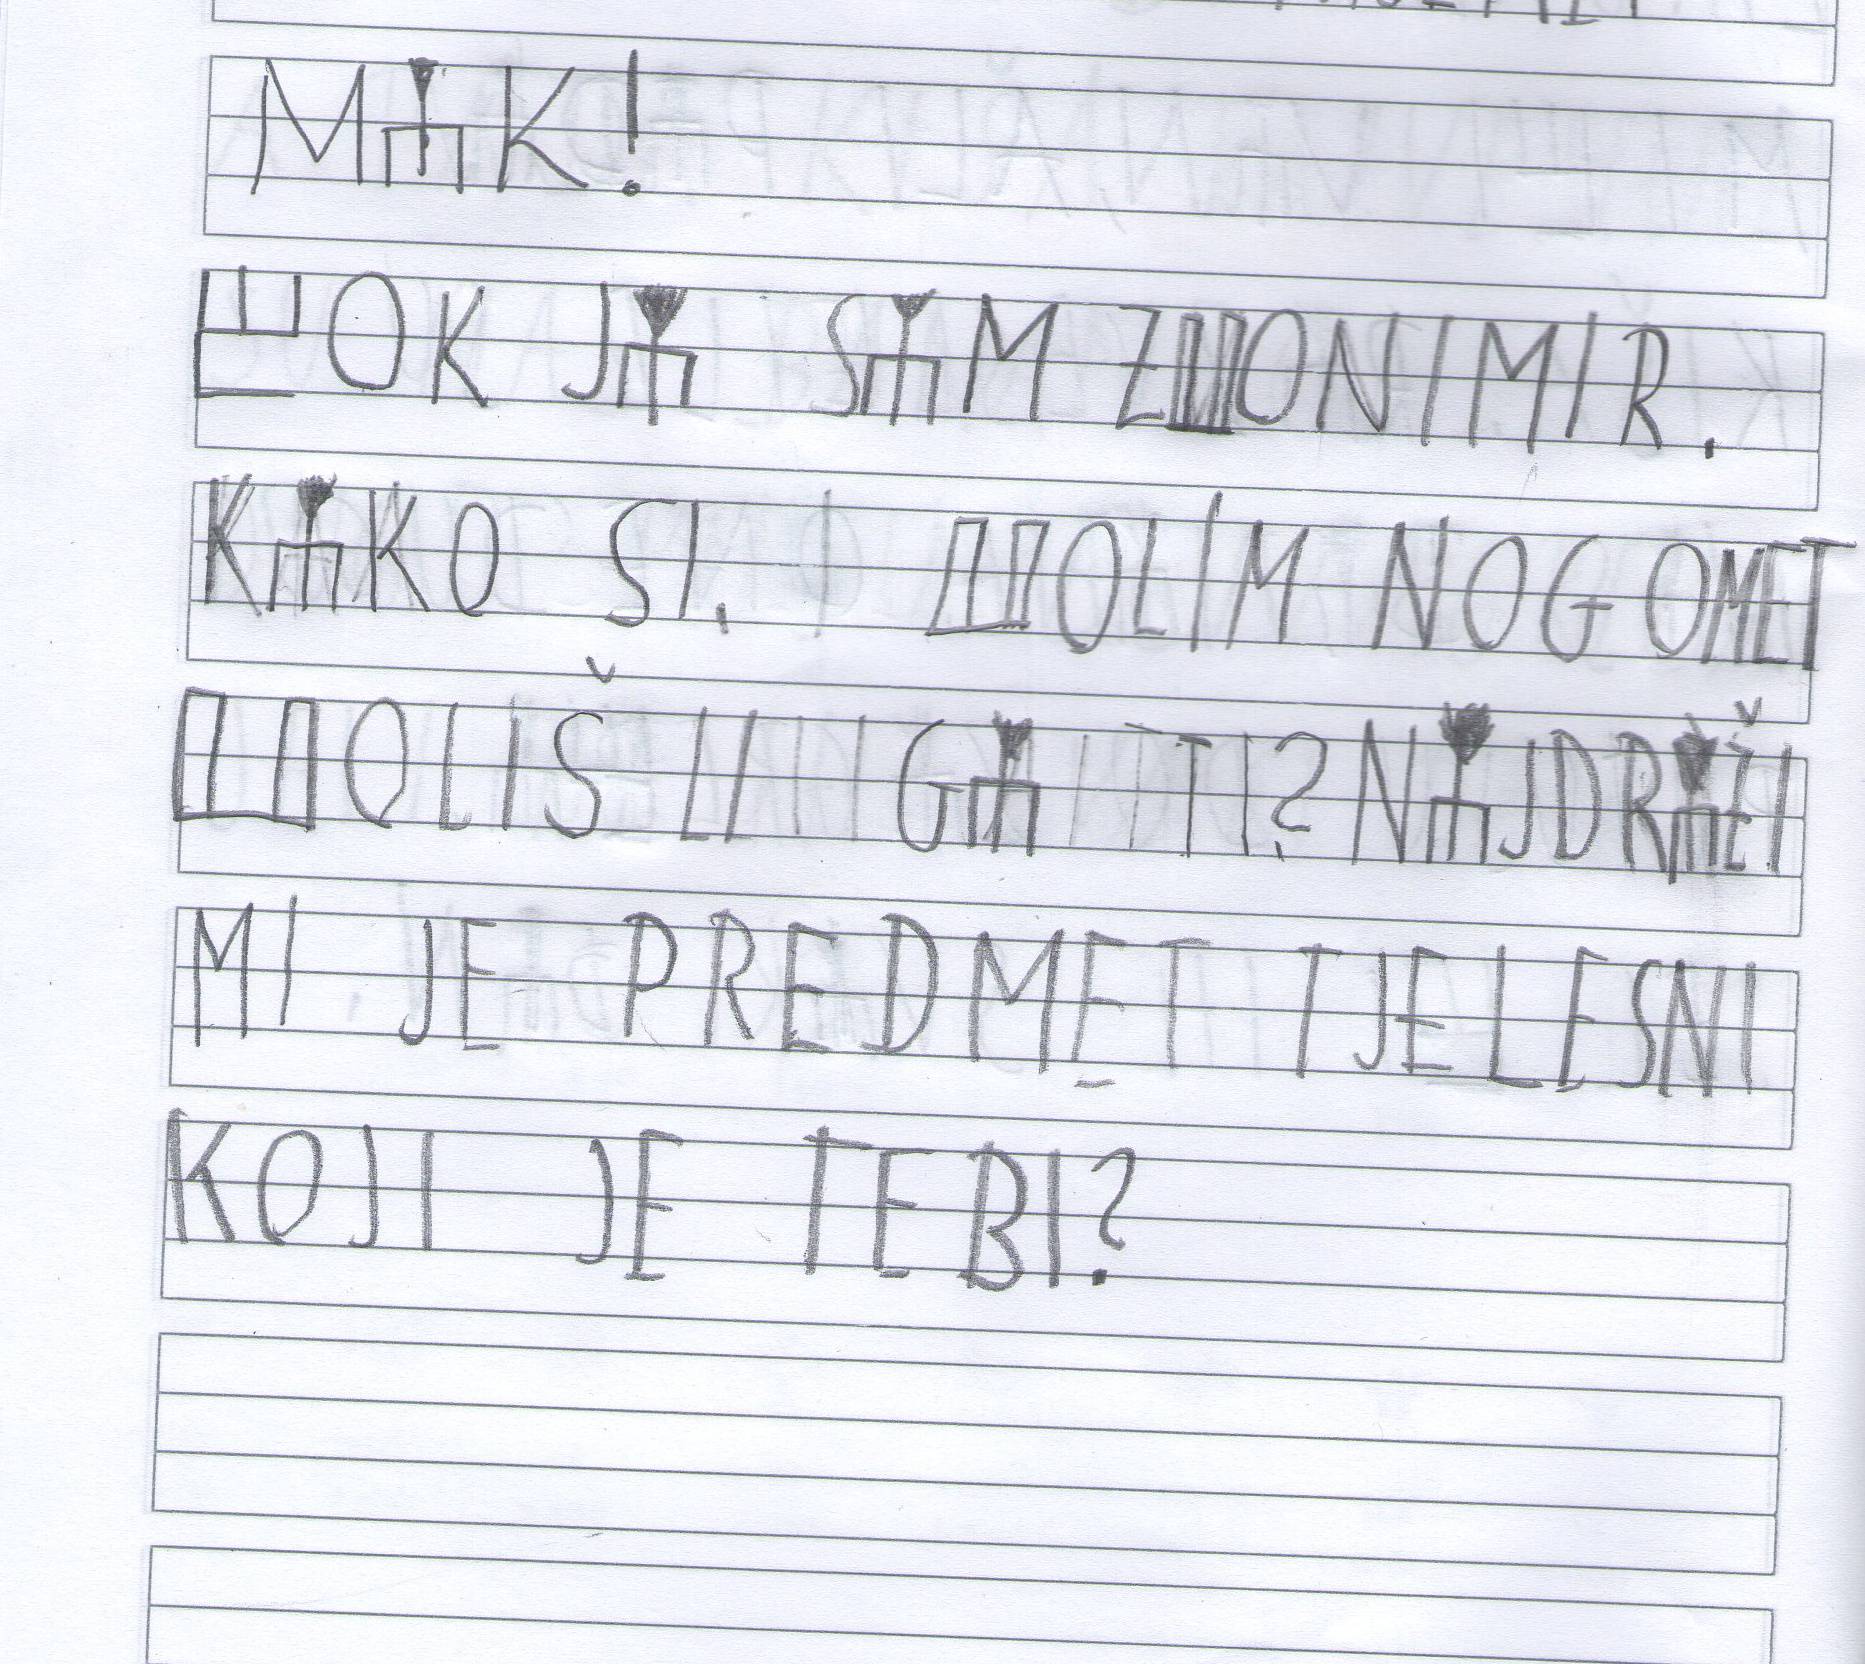 MⰀK!
ⰁOK JⰀ SⰀM ZⰂONIMIR.
KⰀKO SI. ⰂOLIM NOGOMET
ⰂOLIŠ LI GⰀ TI? NⰀJDRⰀŽI
MI JE PREDMET TJELESNI
KOJI JE TEBI?